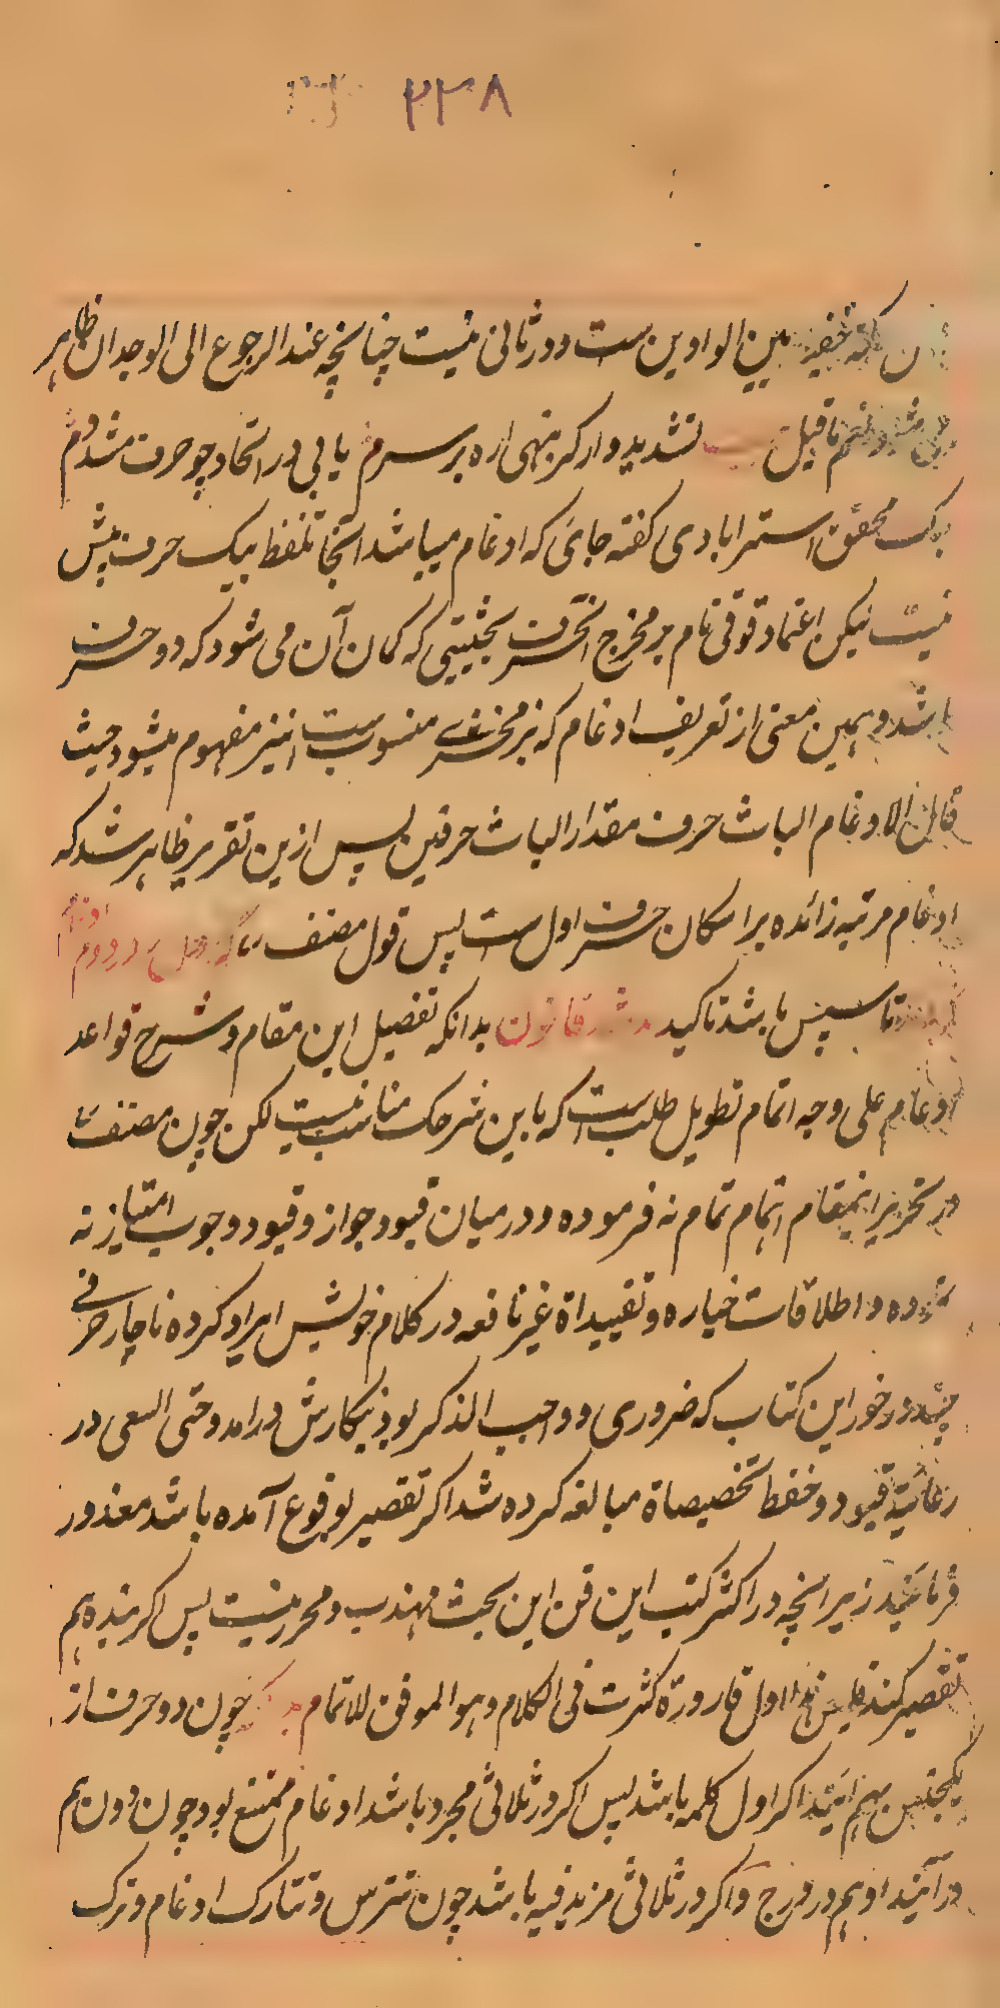 ۲۳۸
ن سکته خفیفه بین الواوین ست و در ثانی نیست چنانچه عند الرجوع الی الوجدان ظاهر
تشدید وار کر بنهی اره بر سرم یا بی در اتحاد چو حرف مشدوم
محقق استرابادی کفته جائ که ادغام میباشد آنجا تلفظ بیک حرف بیش
نیست لیکن اعتماد قوقی تام بر مخرج آنحرف بحیثیتی که کمان آن می شود که دو حرف
باشد و همین معنی از تعریف ادغام که بزمخشری منسوب ست نیز مفهوم میشود حیث
قال الادغام الباث حرف مقدار الباث حرفین پس ازین تقریر ظاهر شد که
ادغام مرتبه زائده بر اسکان حرف اول ست پس قول مصنف دردوم
تاسیس باشد تاکید قانون بدانکه تفصیل این مقام و شرح قواعد
ادغام علی وجه اتمام تطویل طلب ست که باین شرحک مناسب نیست لکن چون مصنف
در تحریر اینمقام اهتمام تمام نه فرموده و در میان قیود جواز و قیود وجوب امتیاز نه
و اطلاقات خیاره و تقییداة غیر نافعه در کلام خویش ایراد کرده ناچار حرفی
چند در خور این کتاب که ضروری و واجب الذکر بود بنکارش درامد و حتی السعی در
رعایة قیود و حفظ تخصیصاة مبالغه کرده شد اکر تقصیر بوقوع آمده باشد معذور
فرمایند زیرا آنچه در اکثر کتب این فن این بحث مهذب و محرر نیست پس اکر بنده هم
تقصیر کند فلیس هذا اول قارورة کثرت فی الکلام و هو الموفق للاتمام چون دو حرف از
یکجنس بهم آیند اکر اول کلمه باشد پس اکر در ثلاثی مجرد باشد ادغام ممتنع بود چون ددن هم
در آیند او هم در درج و اکر در ثلاثی مزید فیه باشد چون تترس و تتارک ادغام و ترک